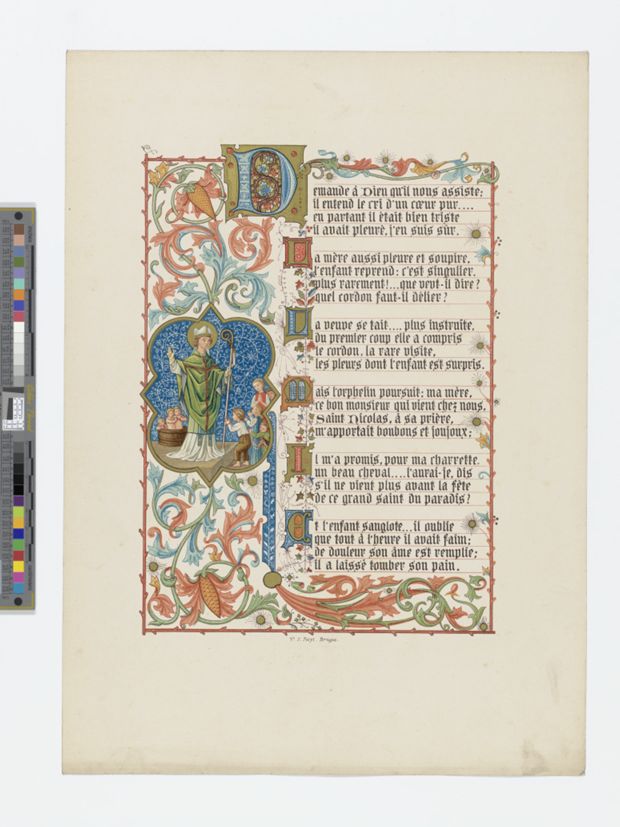 Demande à Dieu qu'il nous assiste;
il entend le cri d'un cœur pur....
en partant il était bien triste
il avait pleuré, j'en suis sûr.
La mère aussi pleure et soupire,
l'enfant reprend: c'est singulier.
plus rarement!...que veut-il dire?
quel cordon faut-il délier?
La veuve se tait.... plus instruite,
du premier coup elle a compris
le cordon, la rare visite,
les pleurs dont l'enfant est surpris.
Mais l'orphelin poursuit: ma mère,
ce bon monsieur qui vient chez nous,
Saint Nicolas, à sa prière,
m'apportait bonbons et joujoux;
Il m'a promis, pour ma charrette,
un beau cheval....l'aurai-je, dis
s'il ne vient plus avant la fête
de ce grand saint du paradis?
Et l'enfant sanglote...il oublie
que tout à l'heure il avait faim;
de douleur son âme est remplie;
il a laissé tomber son pain.
Bruges.